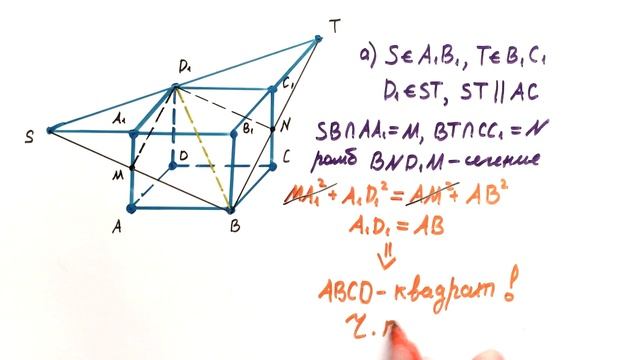 T
D₁
C₁
S
A₁
B₁
N
M
D
C
A
B
а) S∈A₁B₁, T∈B₁C₁
D₁∈ST, ST∥AC
SB∩AA₁=M, BT∩CC₁=N
ромб BND₁M-сечение
MA₁²+A₁D₁²=AM²+AB²
A₁D₁=AB
⇓
ABCD-квадрат!
Ч.